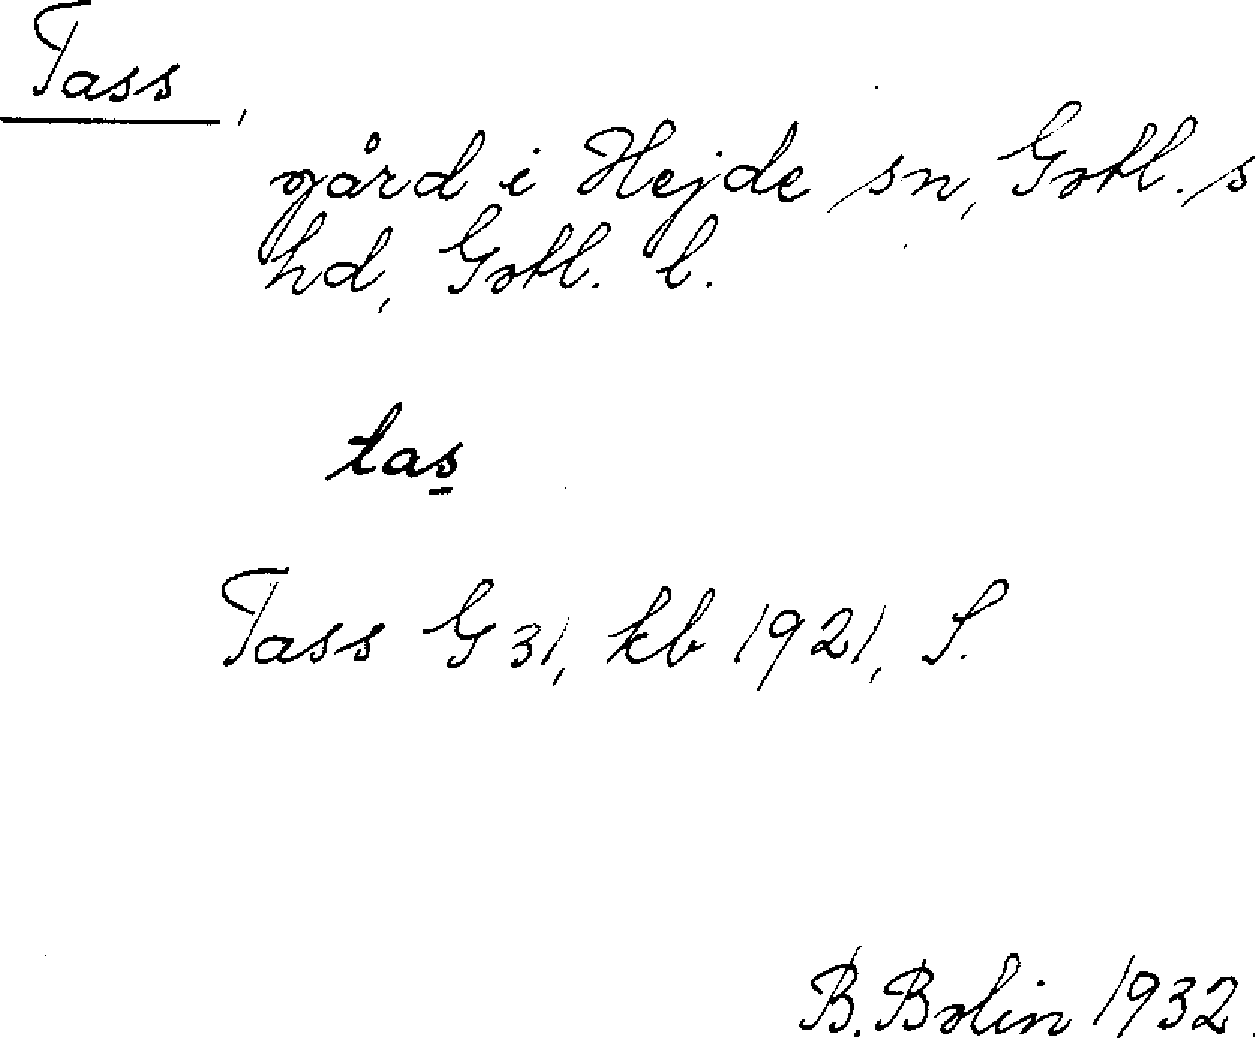 Tass,
gård i Hejde sn, Gotl. s
hd, Gotl. l.
tas
Tass G 31, kb 1921, S.
B. Bolin 1932.